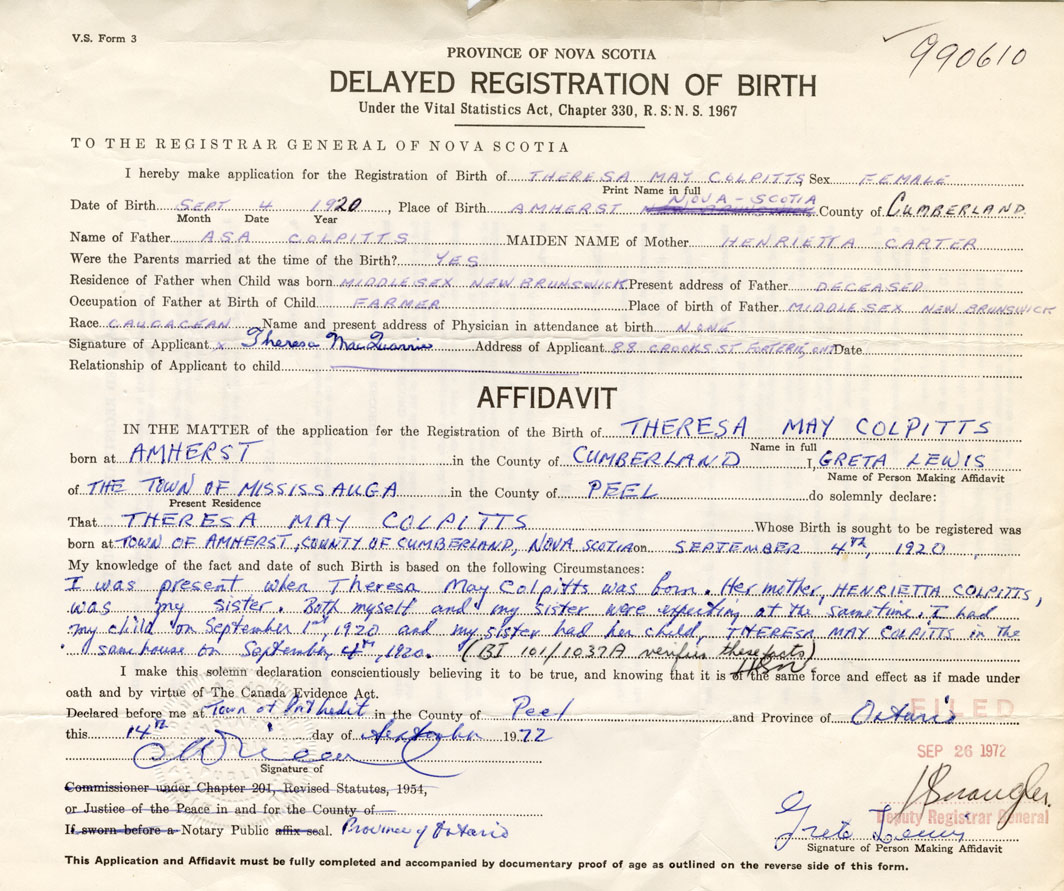 V.S. Form 3
990610
PROVINCE OF NOVA SCOTIA
DELAYED REGISTRATION OF BIRTH
Under the Vital Statistics Act, Chapter 330, R. S. N. S. 1967
TO THE REGISTRAR GENERAL OF NOVA SCOTIA
I hereby make application for the Registration of Birth of THERESA MAY COLPITTS Sex FEMALE
Print Name in full
NOVA-SCOTIA
Date of Birth SEPT 4 1920, Place of Birth AMHERST NEW BRUNSWICK County of CUMBERLAND
Month Date Year
Name of Father ASA COLPITTS MAIDEN NAME of Mother HENRIETTA CARTER
Were the Parents married at the time of the Birth? YES
Residence of Father when Child was born MIDDLESEX NEW BRUNSWICK Present address of Father DECEASED
Occupation of Father at Birth of Child FARMER Place of birth of Father MIDDLESEX NEW BRUNSWICK
Race CAUCACEAN Name and present address of Physician in attendance at birth NONE
Signature of Applicant x Theresa MacQuarrie Address of Applicant 88 CROOKS ST FORT ERIE ONT Date
Relationship of Applicant to child
AFFIDAVIT
IN THE MATTER of the application for the Registration of the Birth of THERESA MAY COLPITTS
Name in full
born at AMHERST in the County of CUMBERLAND I, GRETA LEWIS
Name of Person Making Affidavit
of THE TOWN OF MISSISSAUGA in the County of PEEL do solemnly declare:
Present Residence
That THERESA MAY COLPITTS Whose Birth is sought to be registered was
born at TOWN OF AMHERST, COUNTY OF CUMBERLAND, NOVA SCOTIA on SEPTEMBER 4TH, 1920
My knowledge of the fact and date of such Birth is based on the following Circumstances:
I was present when Theresa May Colpitts was born. Her mother, HENRIETTA COLPITTS,
was my sister. Both myself and my sister were expecting at the same time. I had
my child on September 1st, 1920 and my sister had her child, THERESA MAY COLPITTS in the
same house on September 4th, 1920. (BI 101/1037A verifies these facts)
I make this solemn declaration conscientiously believing it to be true, and knowing that it is of the same force and effect as if made under
oath and by virtue of The Canada Evidence Act.
Declared before me at Town of Port Credit in the County of Peel and Province of Ontario
FILED
this 14th day of September 1972
SEP 26 1972
Signature of
Commissioner under Chapter 201, Revised Statutes, 1954,
or Justice of the Peace in and for the County of
Deputy Registrar General
If sworn before a Notary Public affix seal. Province of Ontario
Greta Lewis
Signature of Person Making Affidavit
This Application and Affidavit must be fully completed and accompanied by documentary proof of age as outlined on the reverse side of this form.